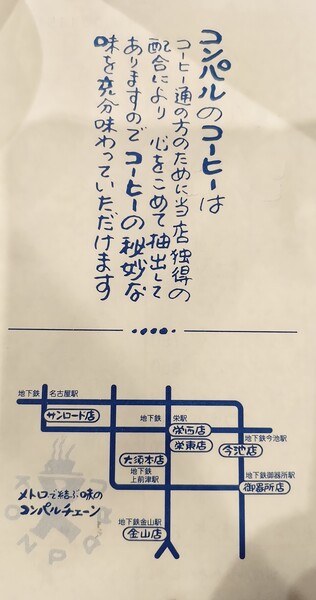 コンパルのコーヒーは
コーヒー通の方のために当店独得の
配合により 心をこめて抽出して
ありますので コーヒーの秘妙な
味を充分味わっていただけます
地下鉄 名古屋駅
サンロード店
地下鉄 栄駅
栄西店
栄東店
地下鉄今池駅
今池店
大須本店
地下鉄
上前津駅
地下鉄御器所駅
御器所店
メトロで結ぶ味の
コンパルチェーン
地下鉄金山駅
金山店